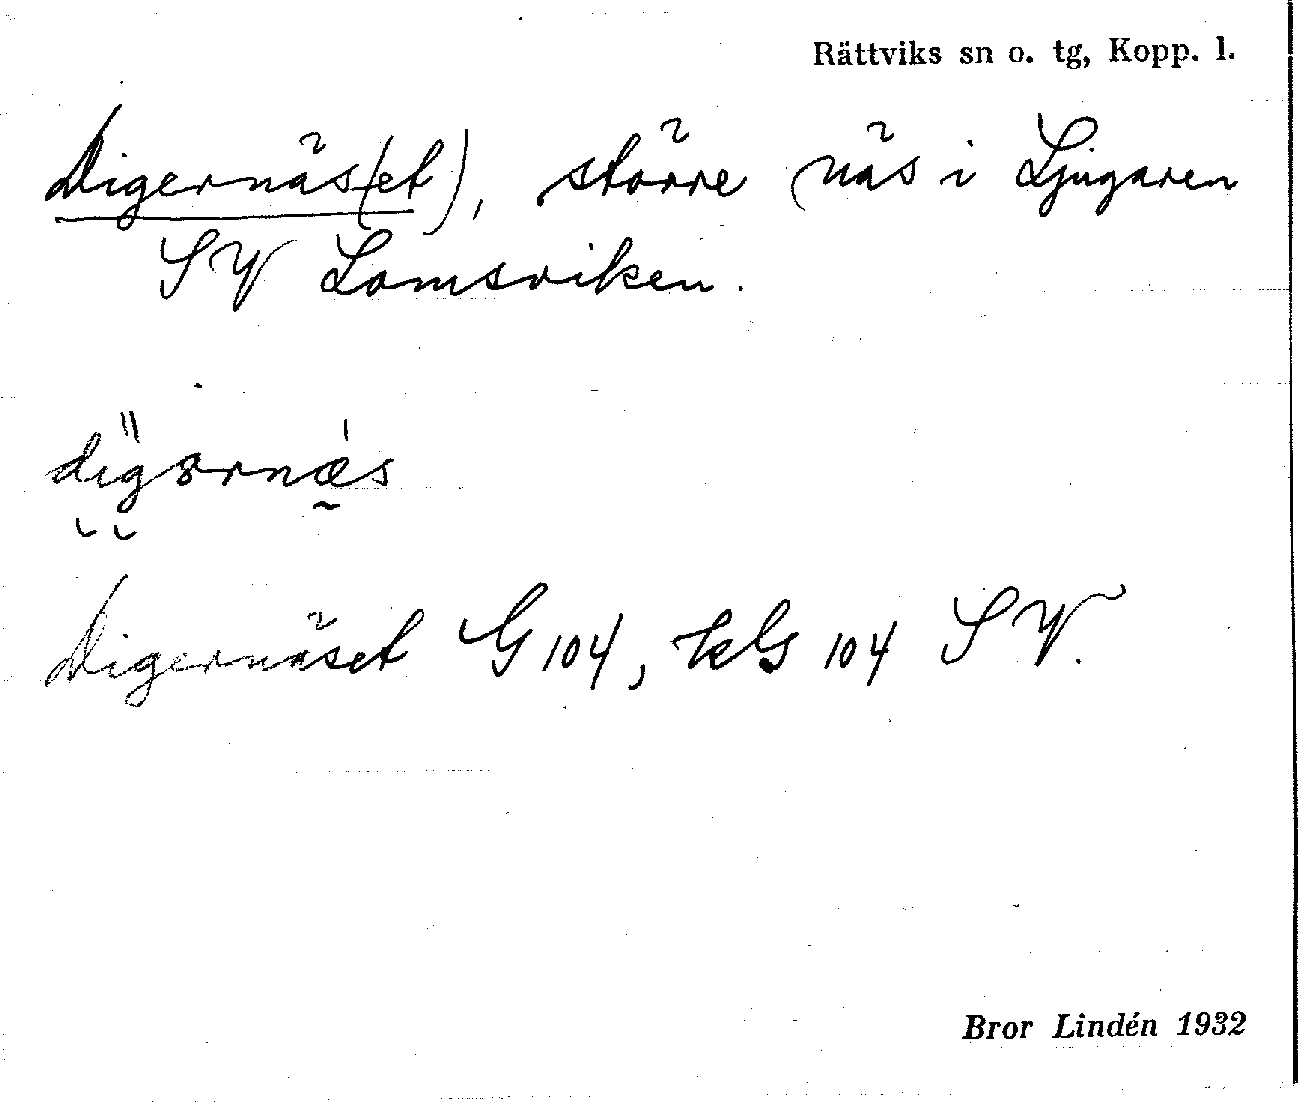 Rättviks sn o. tg, Kopp. l.
Digernäs(et), större näs i Ljugaren
SV Lomsviken.
digərnæs
Digernäset G 104, kG 104 SV.
Bror Lindén 1932